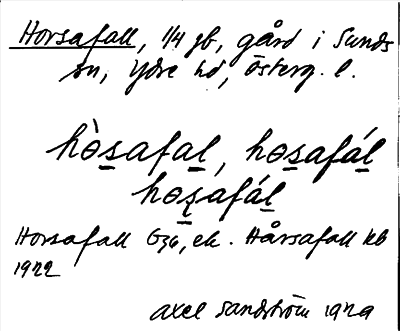 Horsafall, 1/4 gb, gård i Sunds
sn, Ydre hd, Österg. l.
hòsafal, hosafál
hosafál
Horsafall G36, ek. Hårsafall kb
1922
Axel Sandström 1929